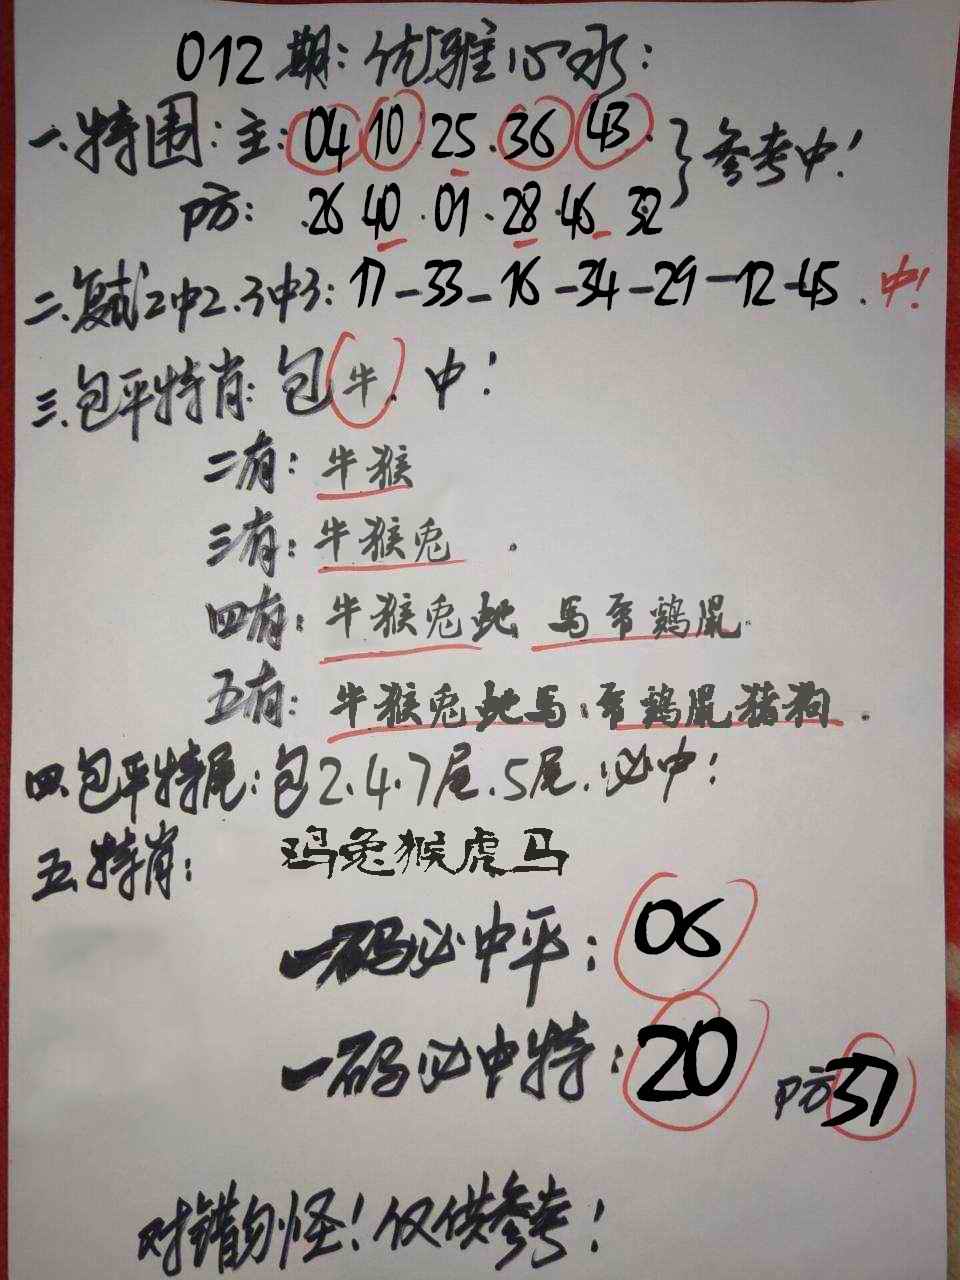 012期:优雅心水:
一.特围:主:04 10.25.36.43.
防: .26 40.01.28.46.32 }参考中!
二.复式2中2.3中3:17-33-16-34-29-12-45.中!
三.包平特肖:包牛.中!
二有:牛猴
三有:牛猴兔.
四有:牛猴兔蛇 马帝鷄鼠.
五有:牛猴兔蛇马:帝鷄鼠猪狗.
四.包平特尾:包2.4.7尾.5尾.必中!
五.特肖: 鸡兔猴虎马
一码必中平:06
一码必中特:20 防37
对错勿怪!仅供参考!